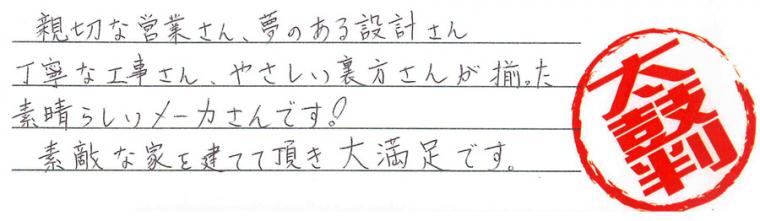 親切な営業さん、夢のある設計さん
丁寧な工事さん、やさしい裏方さんが揃った
素晴らしいメーカさんです!
素敵な家を建てて頂き大満足です。
太鼓判